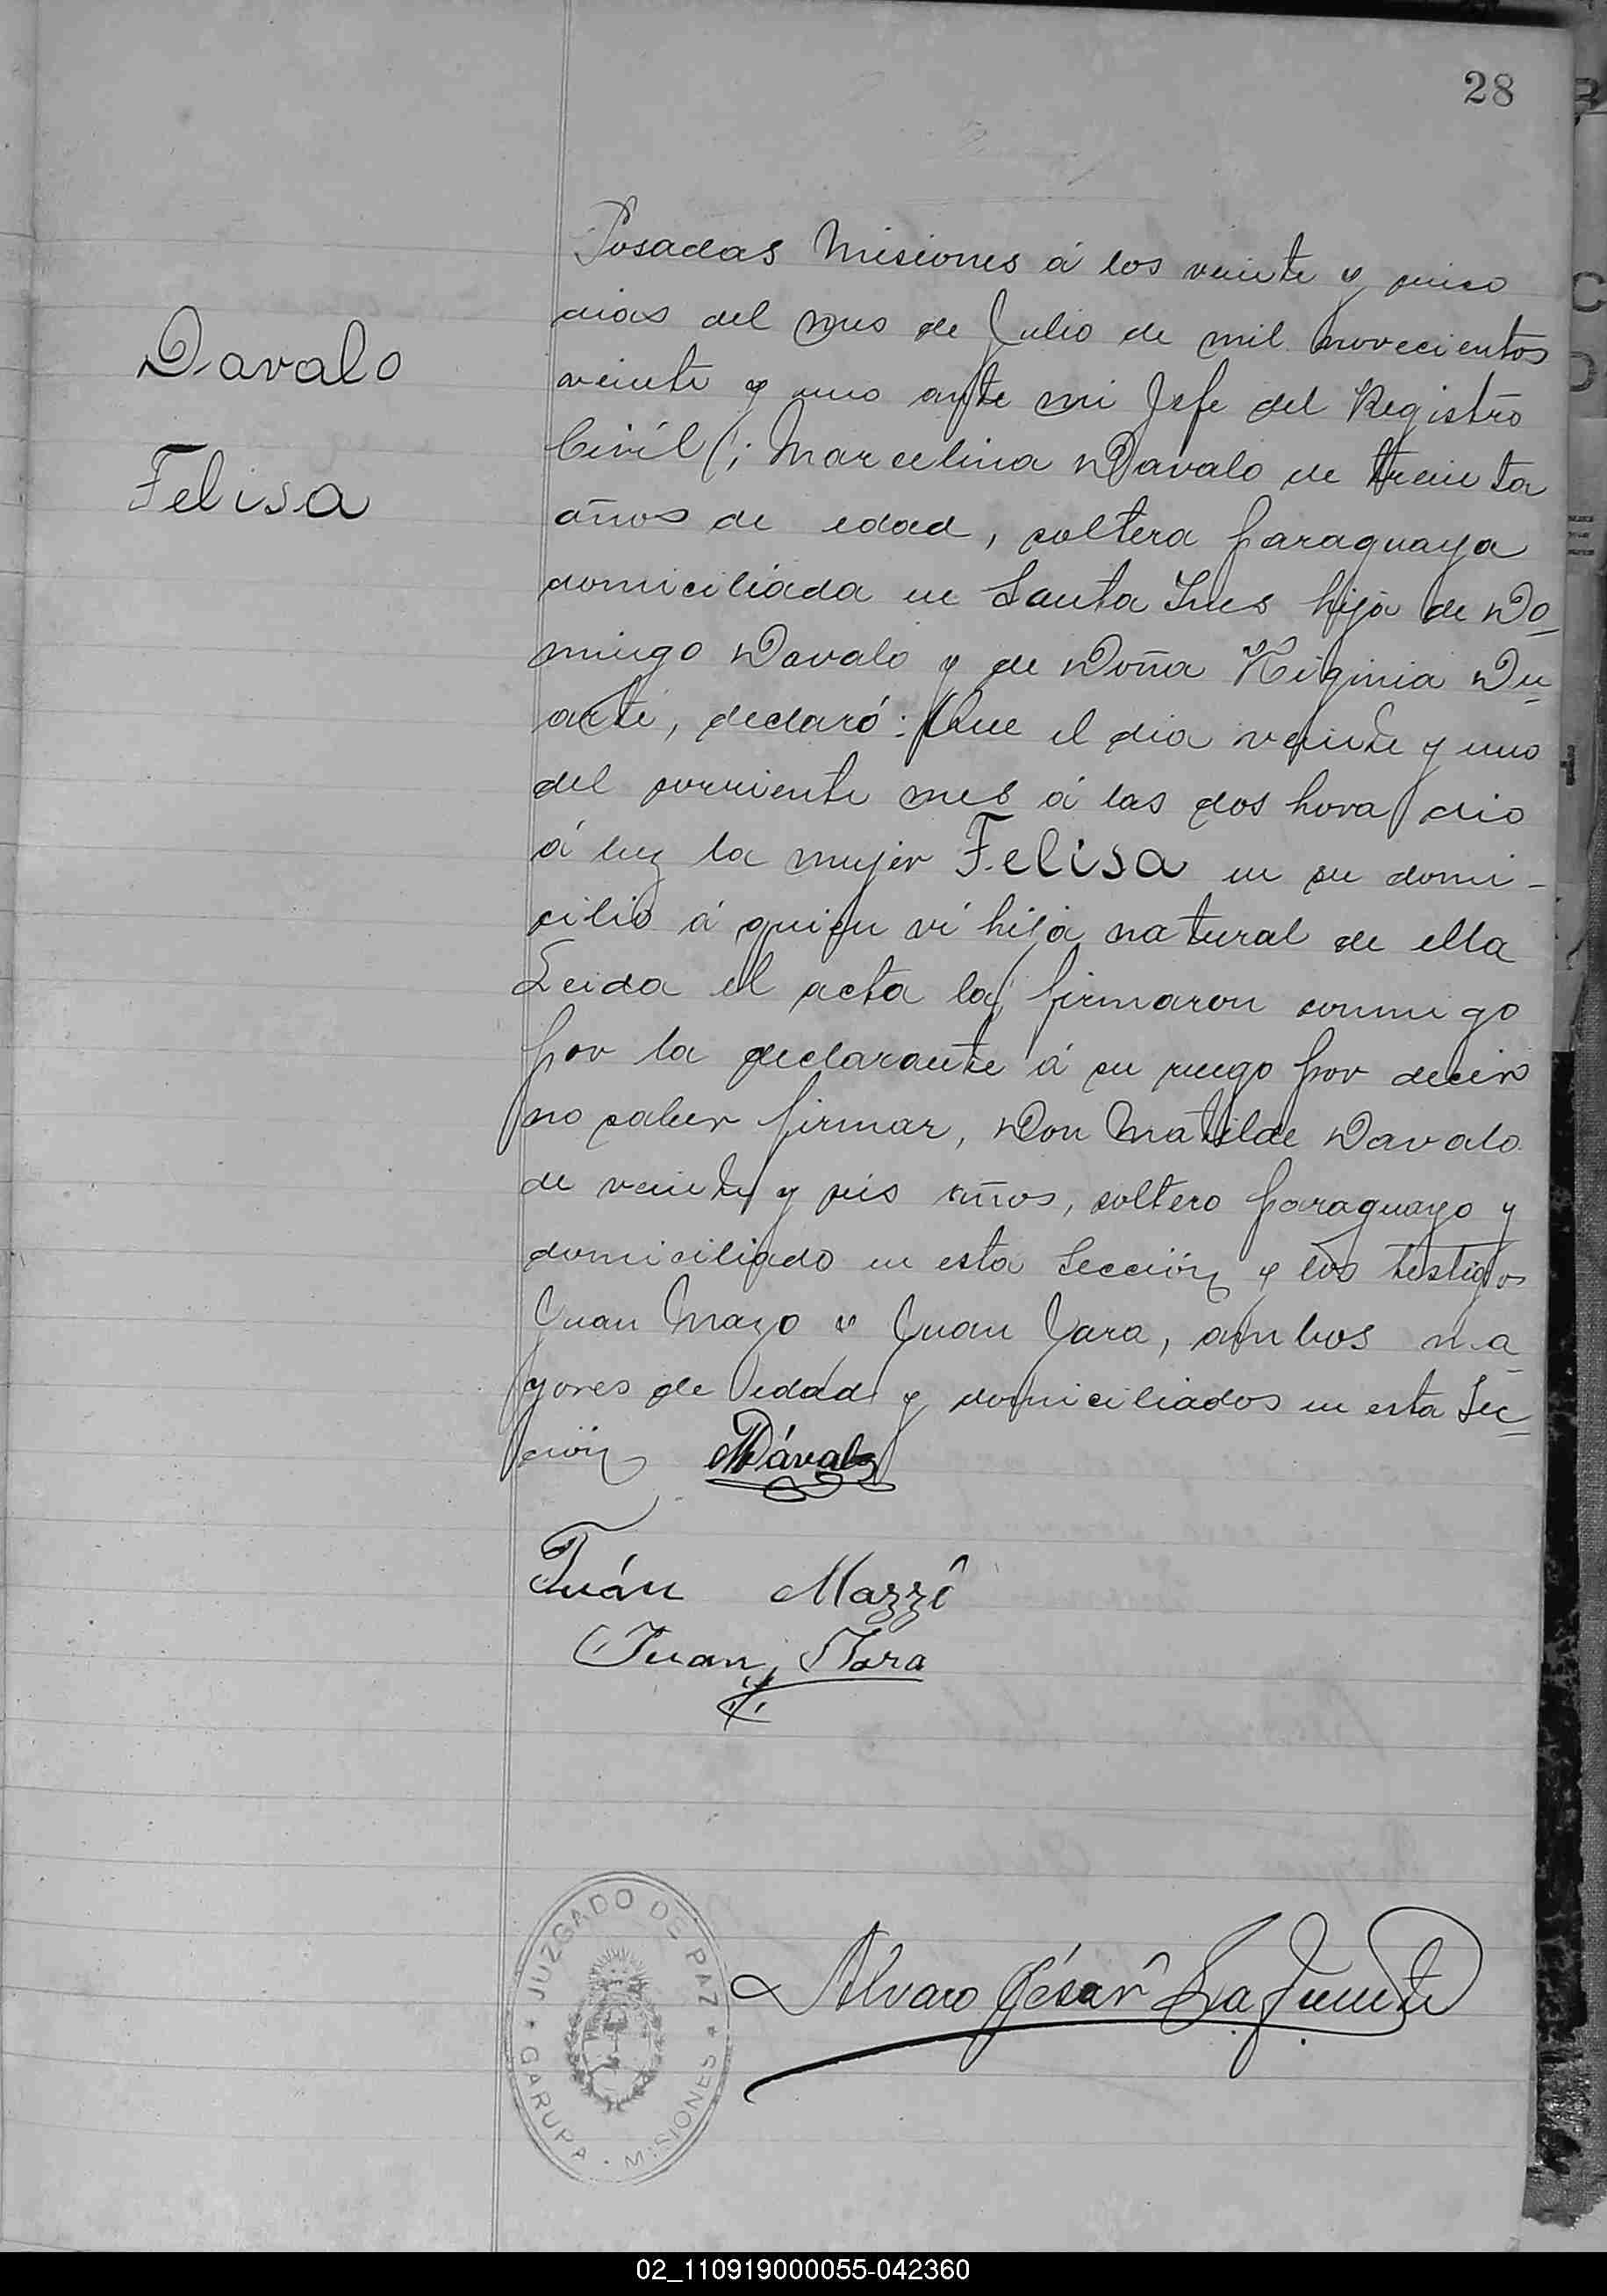 28
Davalo
Felisa
Posadas Misiones á los veinte y cinco
dias del mes de Julio de mil novecientos
veinte y uno ante mi Jefe del Registro
Civil (; Marcelina Davalo de treinta
años de edad, soltera paraguaya
domiciliada en Santa Ines hija de Do_
mingo Davalo y de Doña Virginia Du_
arte, declaró: Que el dia veinte y uno
del corriente mes á las dos hora dio
á luz la mujer Felisa en su domi-
cilio á quien ví hija natural de ella
Leida el acta la firmaron conmigo
por la declarante á su ruego por decir
no saber firmar, Don Matilde Davalo
de veinte y seis años, soltero paraguayo y
domiciliado en esta Sección y los testigos
Juan Mazo y Juan Jara, ambos ma_
yores de edad y domiciliados en esta Sec_
ción MDávalo
Juán Mazzó
Juan Jara
Alvaro César La Fuente
JUZGADO DE PAZ
GARUPA - MISIONES
02_110919000055-042360